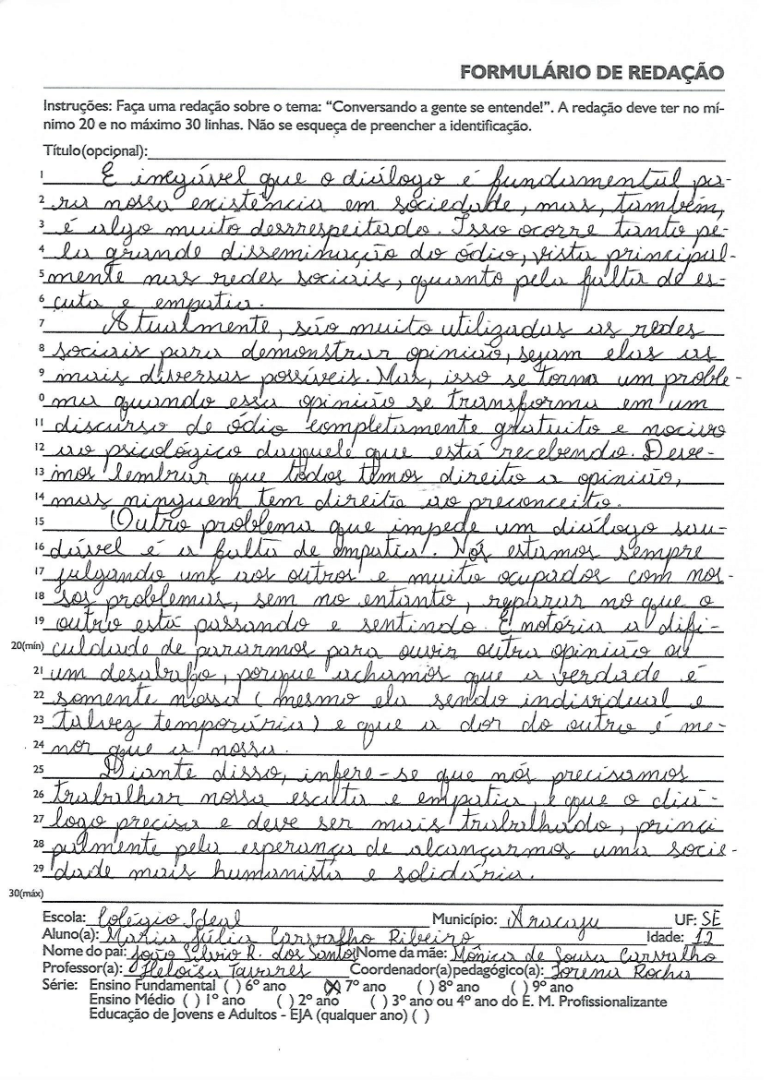 FORMULÁRIO DE REDAÇÃO
Instruções: Faça uma redação sobre o tema: “Conversando a gente se entende!”. A redação deve ter no mí-
nimo 20 e no máximo 30 linhas. Não se esqueça de preencher a identificação.
Título(opcional):
1 É inegável que o diálogo é fundamental pa-
2 ra nossa existência em sociedade, mas, também,
3 é algo muito desrrespeitado. Isso ocorre tanto pe-
4 la grande disseminação do ódio, vista principal-
5 mente nas redes sociais, quanto pela falta de es-
6 cuta e empatia.
7 Atualmente, são muito utilizadas as redes
8 sociais para demonstrar opinião, sejam elas as
9 mais diversas possíveis. Mas, isso se torna um proble-
0 ma quando essa opinião se transforma em um
11 discurso de ódio completamente gratuito e nocivo
12 ao psicológico daquele que está recebendo. Deve-
13 mos lembrar que todos temos direito a opinião,
14 mas ninguem tem direito ao preconceito.
15 Outro problema que impede um diálogo sau-
16 dável é a falta de empatia. Nós estamos sempre
17 julgando uns aos outros e muito ocupados com nos-
18 sos problemas, sem no entanto, reparar no que o
19 outro está passando e sentindo. É notória a difi-
20(mín) culdade de pararmos para ouvir outra opinião ou
21 um desabafo, porque achamos que a verdade é
22 somente nossa (mesmo ela sendo individual e
23 talvez temporária) e que a dor do outro é me-
24 nor que a nossa.
25 Diante disso, infere-se que nós precisamos
26 trabalhar nossa escuta e empatia, e que o diá-
27 logo precisa e deve ser mais trabalhado, princi
28 palmente pela esperança de alcançarmos uma socie-
29 dade mais humanista e solidária.
30(máx)
Escola: Colégio Ideal Município: Aracaju UF: SE
Aluno(a): Maria Júlia Carvalho Ribeiro Idade: 12
Nome do pai: João Silvio R. dos Santos Nome da mãe: Mônica de Sousa Carvalho
Professor(a): Heloisa Tavares Coordenador(a)pedagógico(a): Lorena Rocha
Série: Ensino Fundamental ( ) 6º ano (X) 7º ano ( ) 8º ano ( ) 9º ano
Ensino Médio ( ) 1º ano ( ) 2º ano ( ) 3º ano ou 4º ano do E. M. Profissionalizante
Educação de Jovens e Adultos - EJA (qualquer ano) ( )